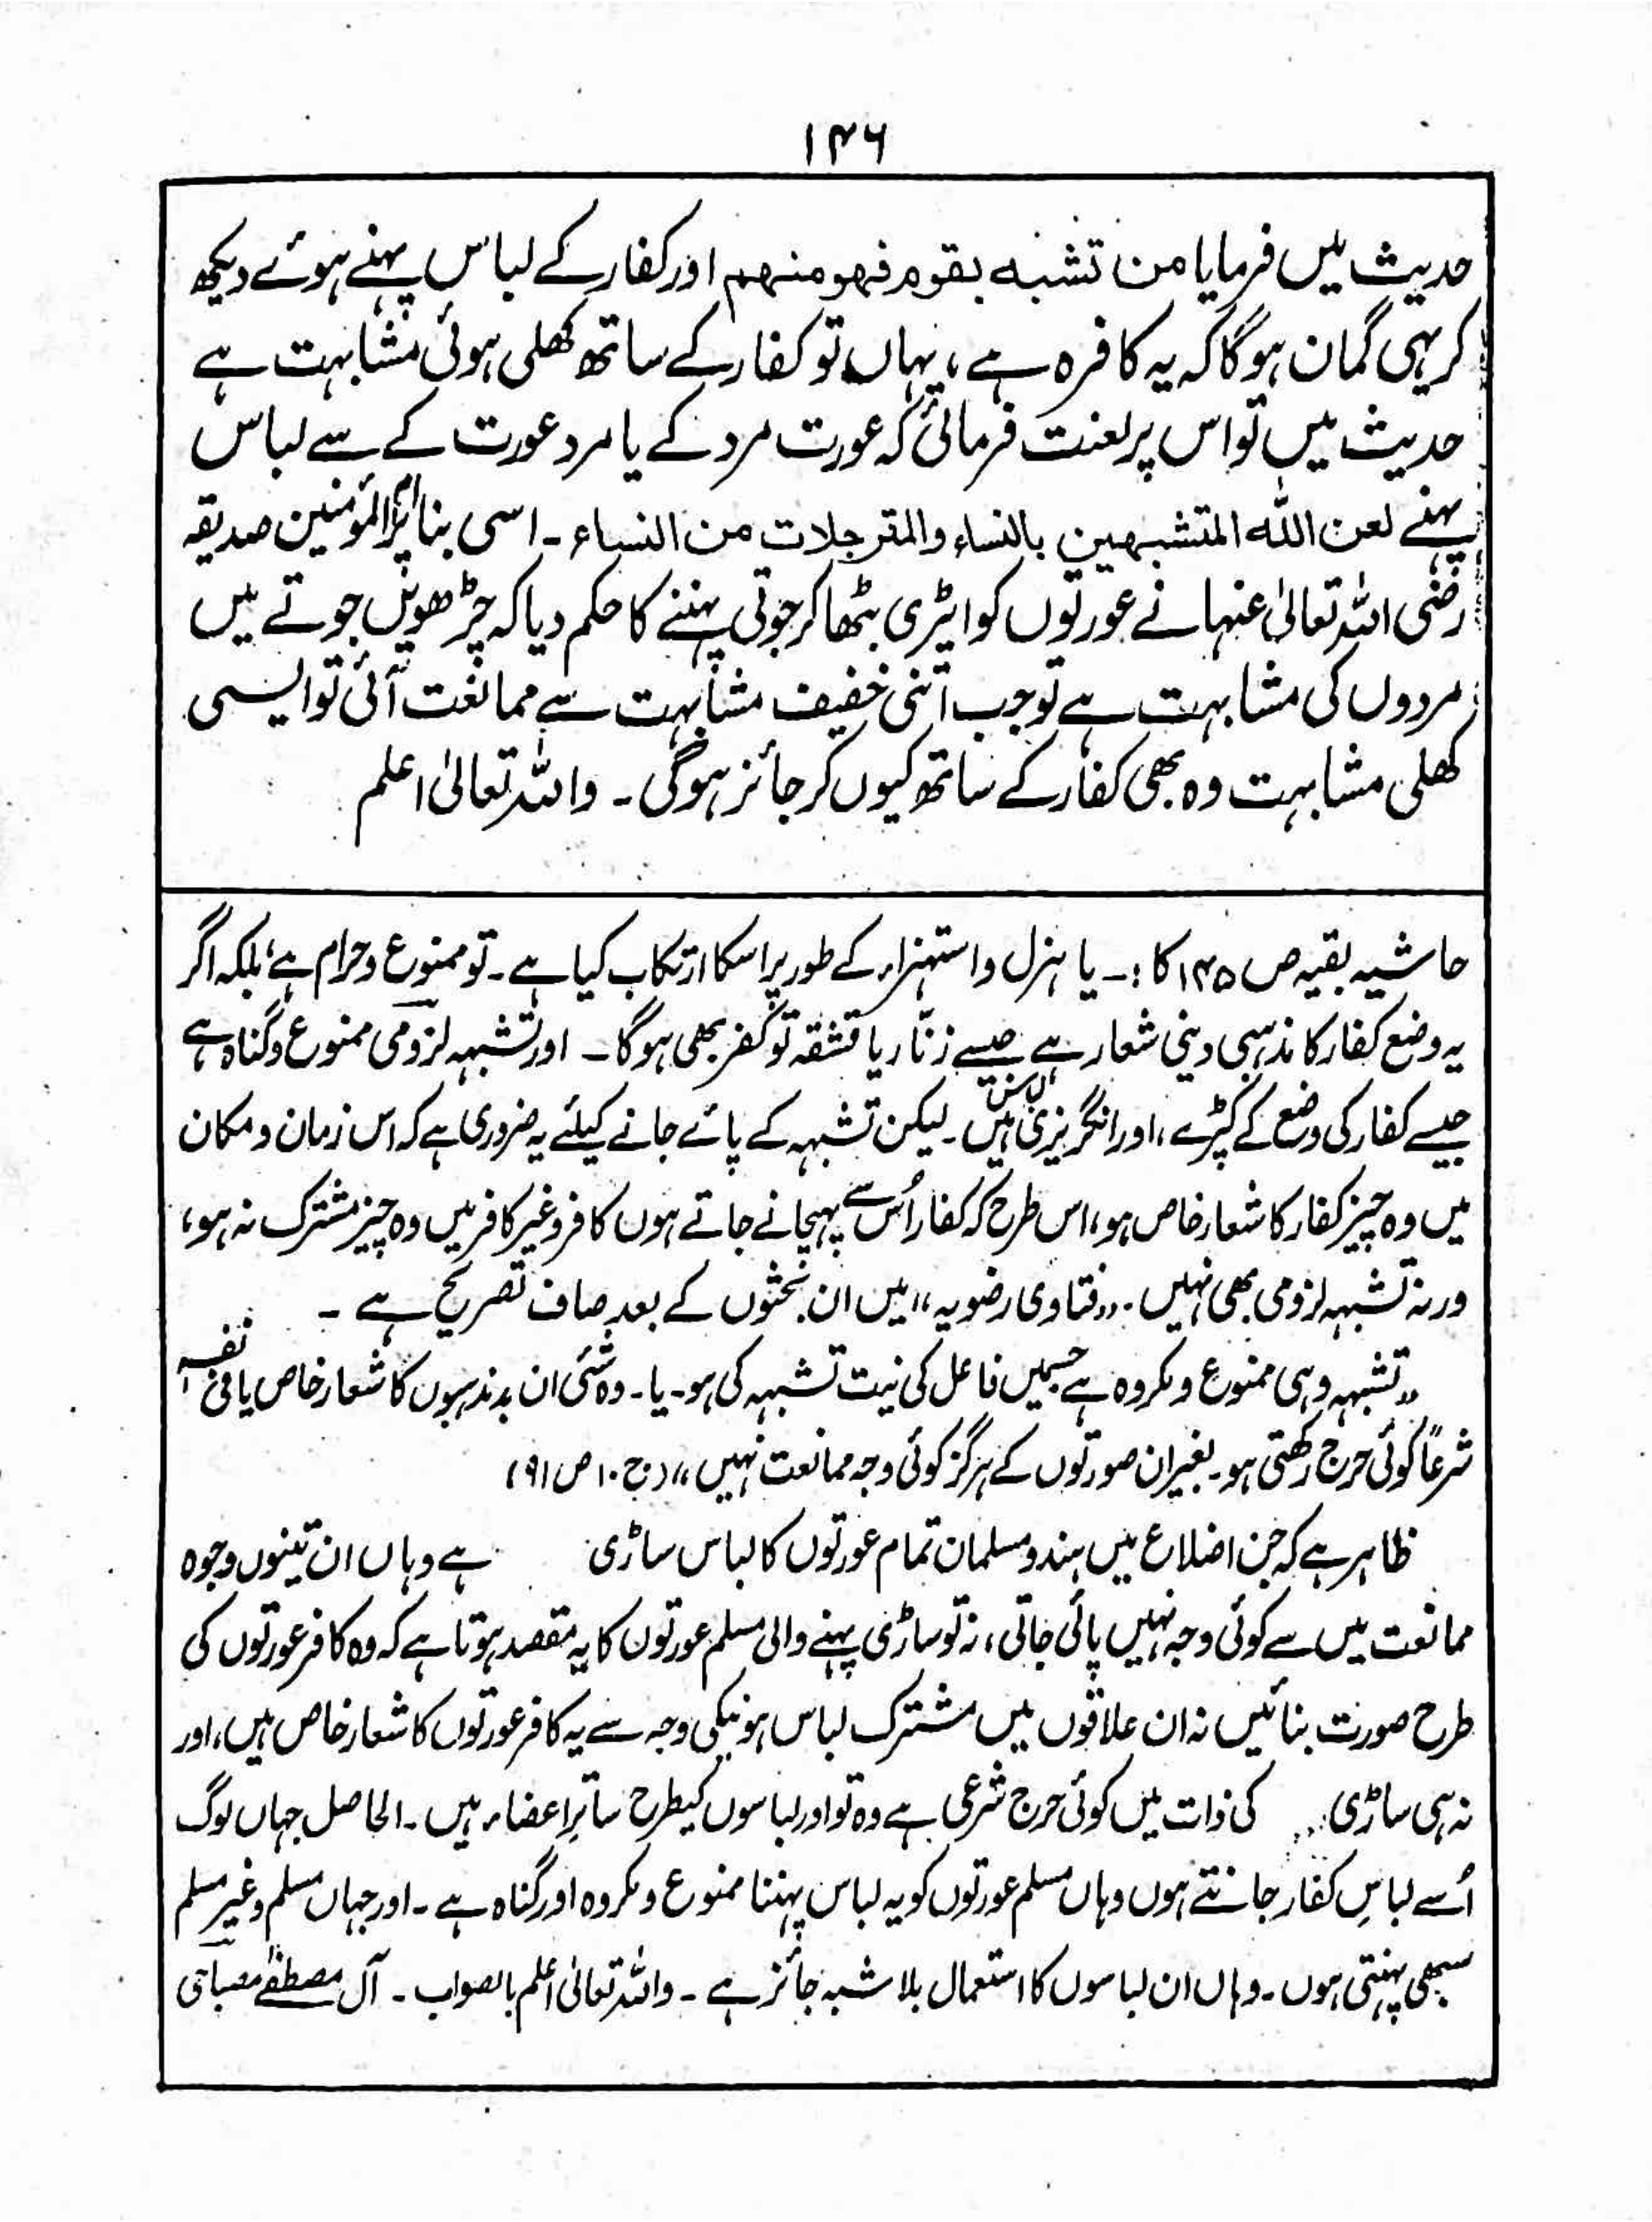 ۱۴۶
حدیث میں فرمایا من تشبہ بقوم فھو منھم اور کفار کے لباس پہنے ہوئے دیکھ
کر یہی گمان ہوگا کہ یہ کافرہ ہے، یہاں تو کفار کے ساتھ کھلی ہوئی مشابہت ہے
حدیث میں تو اس پر لعنت فرمائی کہ عورت مرد کے یا مرد عورت کے سے لباس
پہنے لعن اللہ المتشبھین بالنساء والمترجلات من النساء ۔ اسی بنا پر ام المؤمنین صدیقہ
رضی اللہ تعالیٰ عنہا نے عورتوں کو ایڑی بٹھا کر جوتی پہننے کا حکم دیا کہ چڑھویں جوتے میں
مردوں کی مشابہت ہے تو جب اتنی خفیف مشابہت سے ممانعت آئی تو ایسی
کھلی مشابہت وہ بھی کفار کے ساتھ کیوں کر جائز ہوگی ۔ واللہ تعالیٰ اعلم
حاشیہ بقیہ ص ۱۴۵ کا :۔ یا ہزل و استہزاء کے طور پر اسکا ارتکاب کیا ہے ۔ تو ممنوع و حرام ہے، بلکہ اگر
یہ وضع کفار کا مذہبی دینی شعار ہے جیسے زنّار یا قشقہ تو کفر بھی ہوگا ۔ اور تشبہہ لزومی ممنوع و گناہ ہے
جیسے کفار کی وضع کے کپڑے، اور انگریزی لباس ہیں ۔ لیکن تشبہہ کے پائے جانے کیلئے یہ ضروری ہے کہ اس زمان و مکان
میں وہ چیز کفار کا شعار خاص ہو، اس طرح کہ کفار اُس سے پہچانے جاتے ہوں کافر و غیر کافر میں وہ چیز مشترک نہ ہو،
ورنہ تشبہہ لزومی بھی نہیں ۔ ،،فتاوی رضویہ،، میں ان بحثوں کے بعد صاف تصریح ہے ۔
،،تشبہہ وہی ممنوع و مکروہ ہے جسمیں فاعل کی نیت تشبہہ کی ہو ۔ یا ۔ وہ شئی ان بدمذہبوں کا شعار خاص یا فی نفسہ
شرعاً کوئی حرج رکھتی ہو ۔ بغیر ان صورتوں کے ہرگز کوئی وجہ ممانعت نہیں،، (ج ۱۰ ص ۹۱)
ظاہر ہے کہ جن اضلاع میں ہندو مسلمان تمام عورتوں کا لباس ساڑی ہے وہاں ان تینوں وجوہ
ممانعت میں سے کوئی وجہ نہیں پائی جاتی، نہ تو ساڑی پہنے والی مسلم عورتوں کا یہ مقصد ہوتا ہے کہ وہ کافر عورتوں کی
طرح صورت بنائیں نہ ان علاقوں میں مشترک لباس ہونیکی وجہ سے یہ کافر عورتوں کا شعار خاص ہیں، اور
نہ ہی ساڑی کی ذات میں کوئی حرج شرعی ہے وہ تو اور لباسوں کیطرح ساتر اعضاء ہیں ۔ الحاصل جہاں لوگ
اُسے لباسِ کفار جانتے ہوں وہاں مسلم عورتوں کو یہ لباس پہننا ممنوع و مکروہ اور گناہ ہے ۔ اور جہاں مسلم و غیر مسلم
سبھی پہنتی ہوں ۔ وہاں ان لباسوں کا استعمال بلا شبہ جائز ہے ۔ واللہ تعالیٰ اعلم بالصواب ۔ آل مصطفےٰ مصباحی